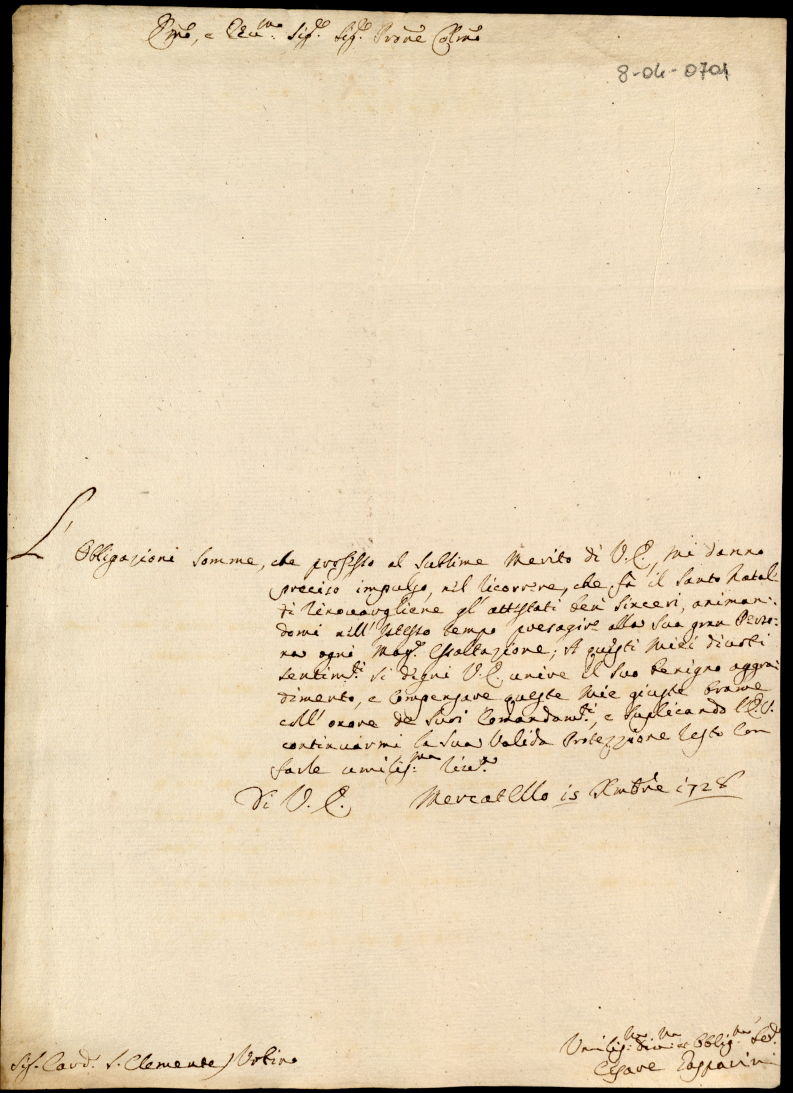 Emo, e Rev.mo Sig.re Sig.re Prone Colmo
8-04-0701
L'Obligazioni somme, che professo al sublime Merito di V. E., mi danno
preciso impulso, nel ricorrere, che fà il Santo Natal
di rinovargliene gl'attestati ben sinceri, animan:
domi nell'istesso tempo presagire alla sua gran Perso:
na ogni Mag.re esaltazione; A questi miei divoti
sentim.ti si degni V. E. unire il suo benigno aggra
dimento, e compensare queste mie giuste brame
coll'onore de suoi Comandam.ti, e suplicando l'E. V.
continuarmi la sua valida Protezzione resto con
farle umiliss.ma river.a
Di V. E. Mercatello 15 Xmbre 1728
Sig. Card. S. Clemente
Umiliss.mo Div.mo et Obblig.mo Ser.
Cesare